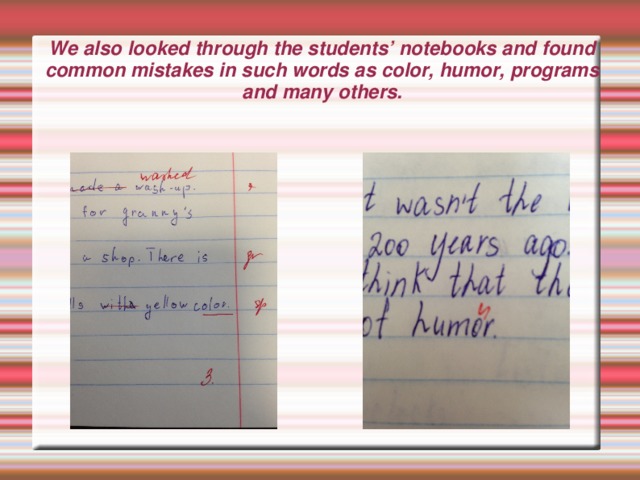 We also looked through the students’ notebooks and found
common mistakes in such words as color, humor, programs
and many others.
washed
made a wash-up. s
for granny's
a shop. There is gr
lls with yellow color. sp
3.
t wasn't the
200 years ago.
think that th
u
of humor.